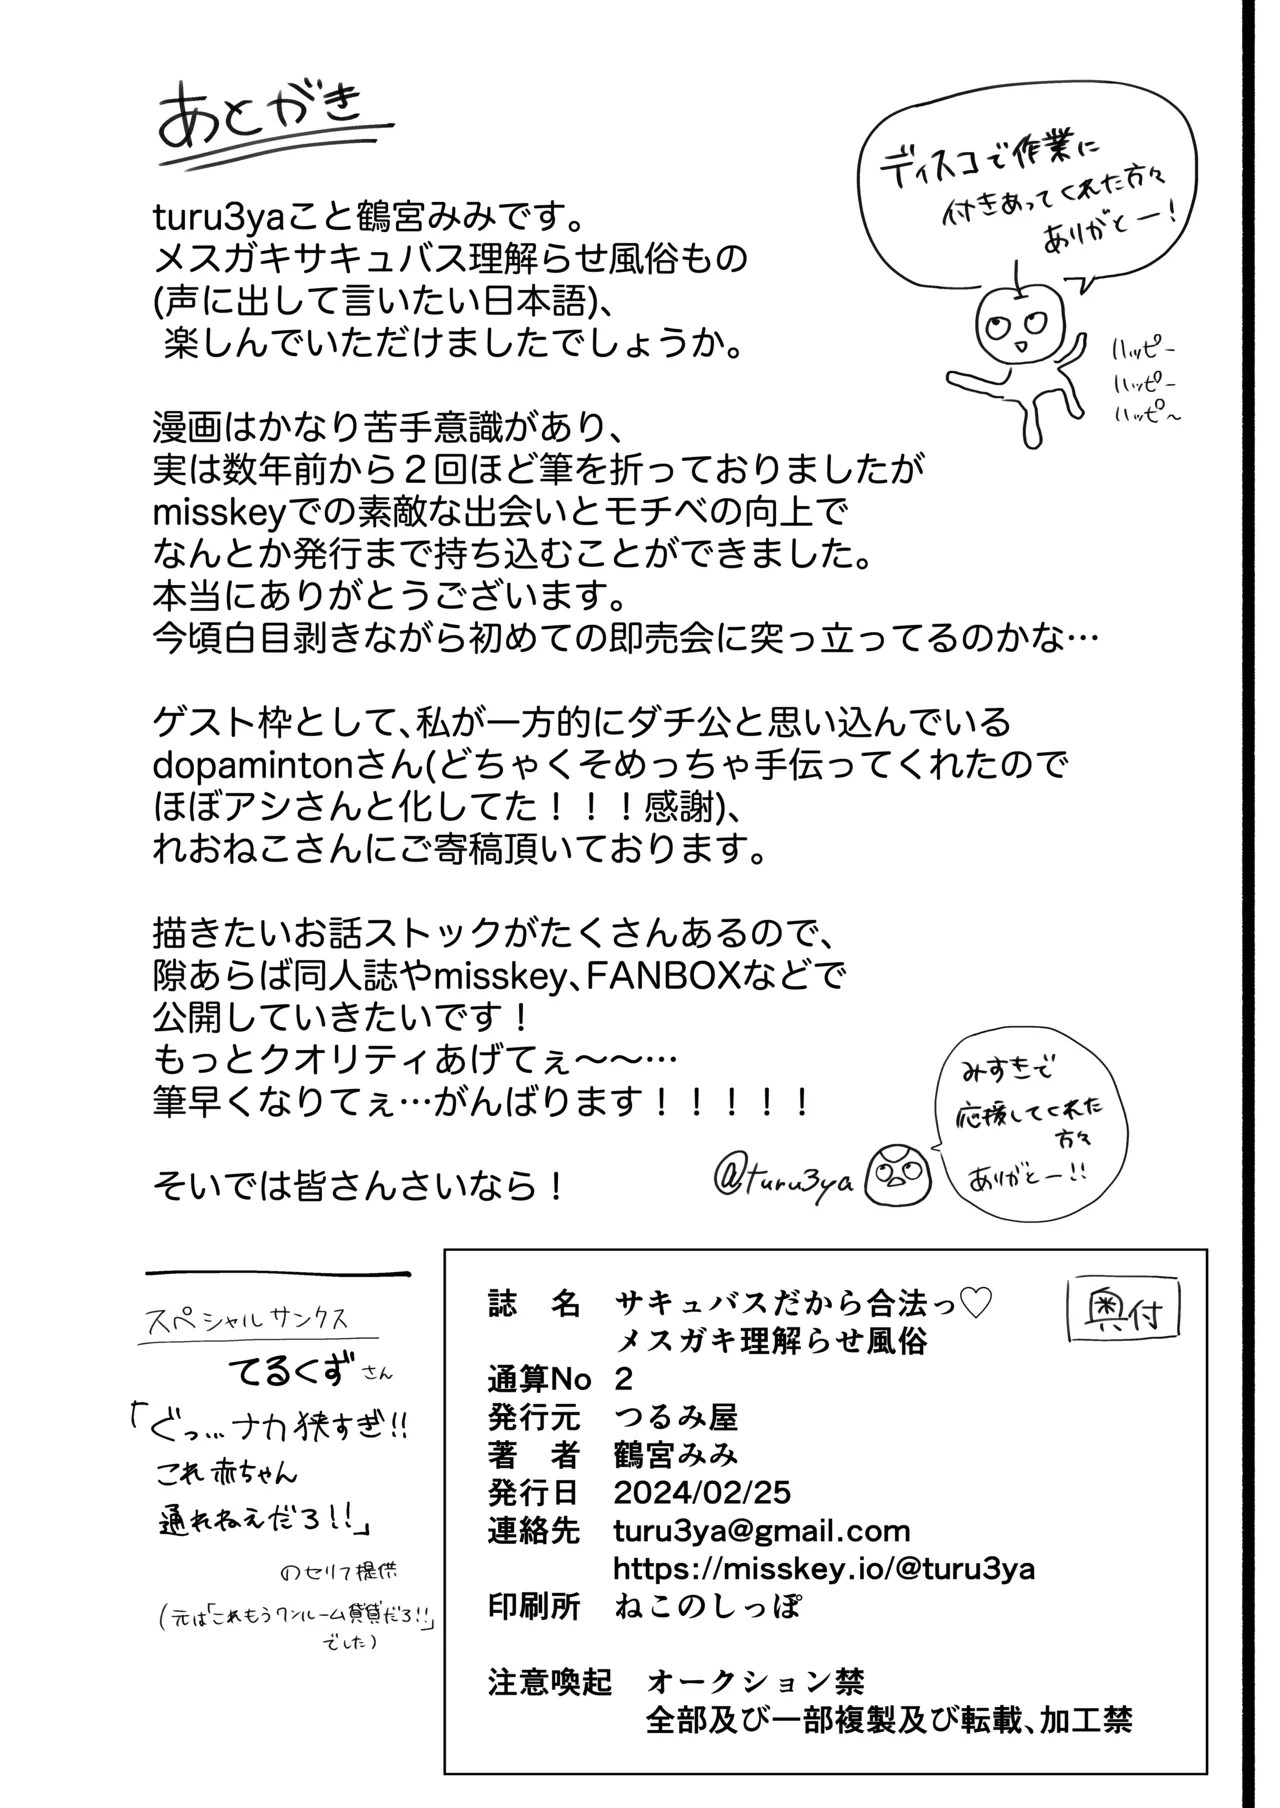 あとがき
turu3yaこと鶴宮みみです。
メスガキサキュバス理解らせ風俗もの
(声に出して言いたい日本語)、
楽しんでいただけましたでしょうか。
漫画はかなり苦手意識があり、
実は数年前から２回ほど筆を折っておりましたが
misskeyでの素敵な出会いとモチベの向上で
なんとか発行まで持ち込むことができました。
本当にありがとうございます。
今頃白目剥きながら初めての即売会に突っ立ってるのかな…
ゲスト枠として、私が一方的にダチ公と思い込んでいる
dopamintonさん(どちゃくそめっちゃ手伝ってくれたので
ほぼアシさんと化してた！！！感謝)、
れおねこさんにご寄稿頂いております。
描きたいお話ストックがたくさんあるので、
隙あらば同人誌やmisskey、FANBOXなどで
公開していきたいです！
もっとクオリティあげてぇ〜〜…
筆早くなりてぇ…がんばります！！！！！
そいでは皆さんさいなら！
ディスコで作業に
付きあってくれた方々
ありがとー！
ハッピー
ハッピー
ハッピ〜
みすきで
応援してくれた
方々
ありがとー!!
@turu3ya
スペシャルサンクス
てるくずさん
「ぐっ…ナカ狭すぎ!!
これ赤ちゃん
通れねえだろ!!」
のセリフ提供
(元は「これもうワンルーム賃貸だろ!!」
でした)
奥付
誌　名　サキュバスだから合法っ♡
メスガキ理解らせ風俗
通算No　2
発行元　つるみ屋
著　者　鶴宮みみ
発行日　2024/02/25
連絡先　turu3ya@gmail.com
https://misskey.io/@turu3ya
印刷所　ねこのしっぽ
注意喚起　オークション禁
全部及び一部複製及び転載、加工禁